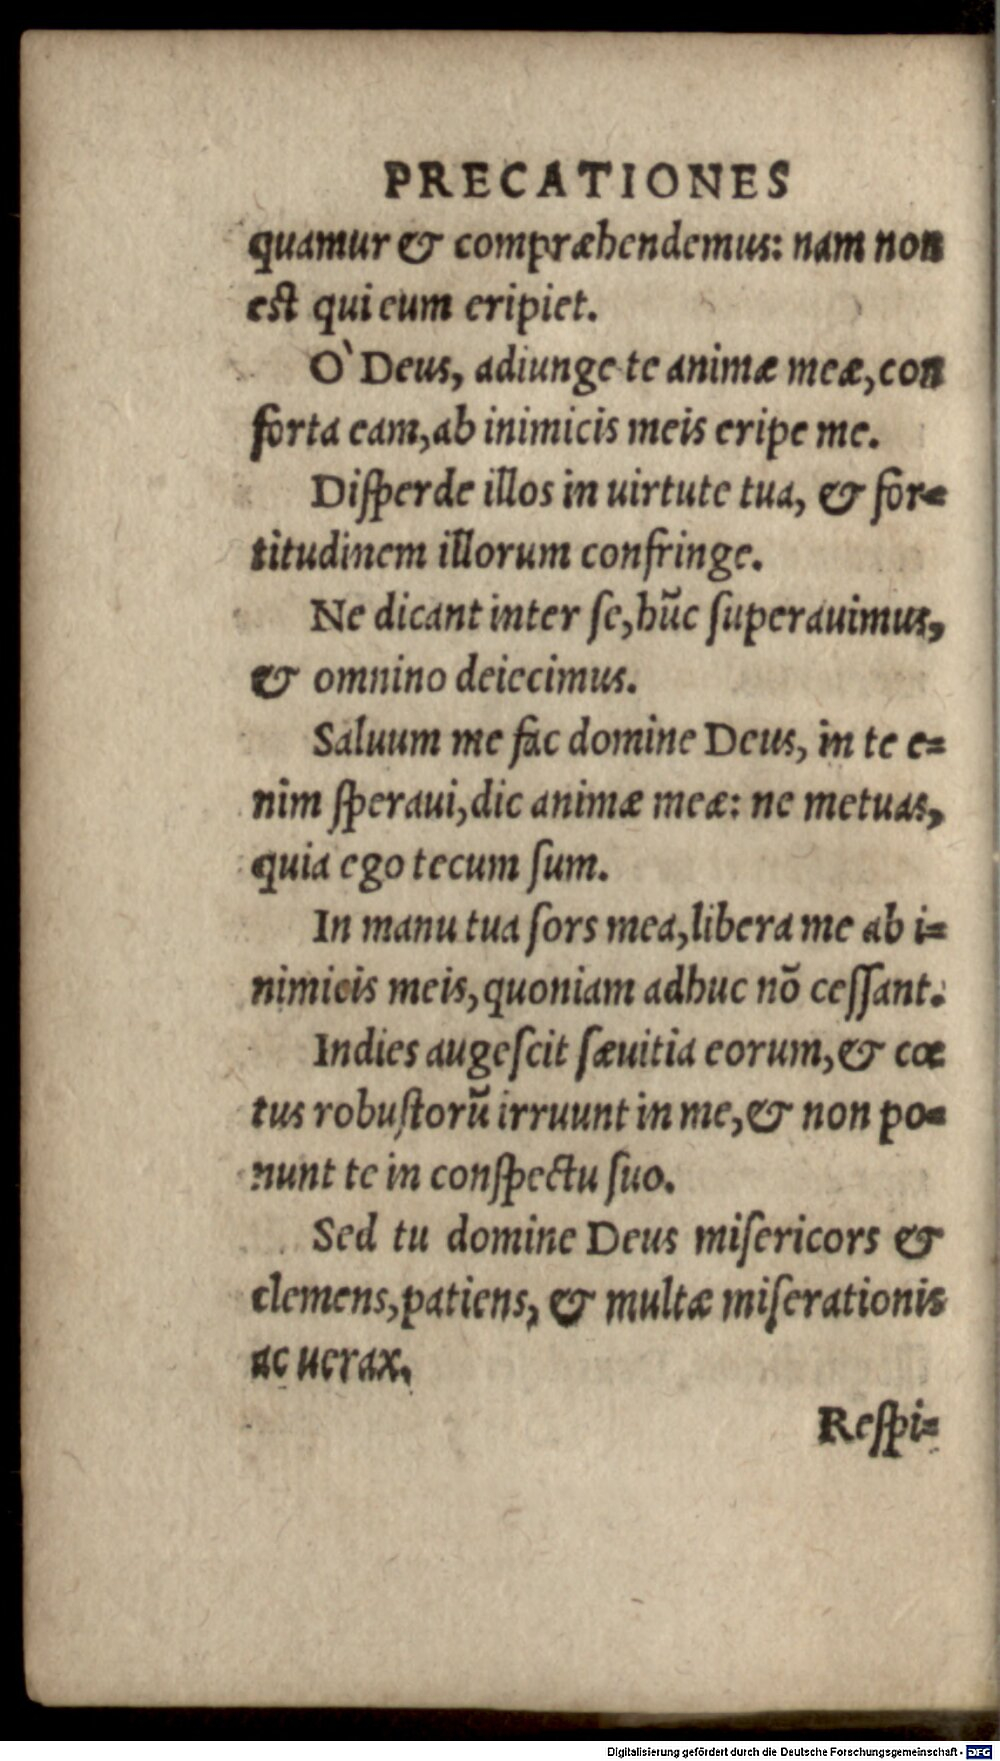 PRECATIONES
quamur & compræhendemus: nam non
est qui eum eripiet.
O` Deus, adiunge te animæ meæ, con
forta eam, ab inimicis meis eripe me.
Diſperde illos in uirtute tua, & for=
titudinem illorum confringe.
Ne dicant inter ſe, hūc ſuperauimus,
& omnino deiecimus.
Saluum me fac domine Deus, in te e=
nim ſperaui, dic animæ meæ: ne metuas,
quia ego tecum ſum.
In manu tua ſors mea, libera me ab i=
nimicis meis, quoniam adhuc nō ceſſant.
Indies augeſcit ſæuitia eorum, & cœ
tus robuſtorū irruunt in me, & non po=
nunt te in conſpectu ſuo.
Sed tu domine Deus miſericors &
clemens, patiens, & multæ miſerationis
ac uerax.
Reſpi=
Digitalisierung gefördert durch die Deutsche Forschungsgemeinschaft - DFG